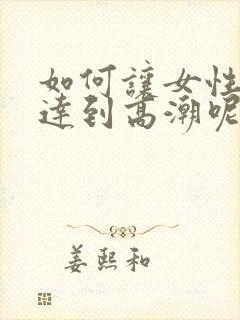 如何讓女性
達到高潮呢
姜熙和